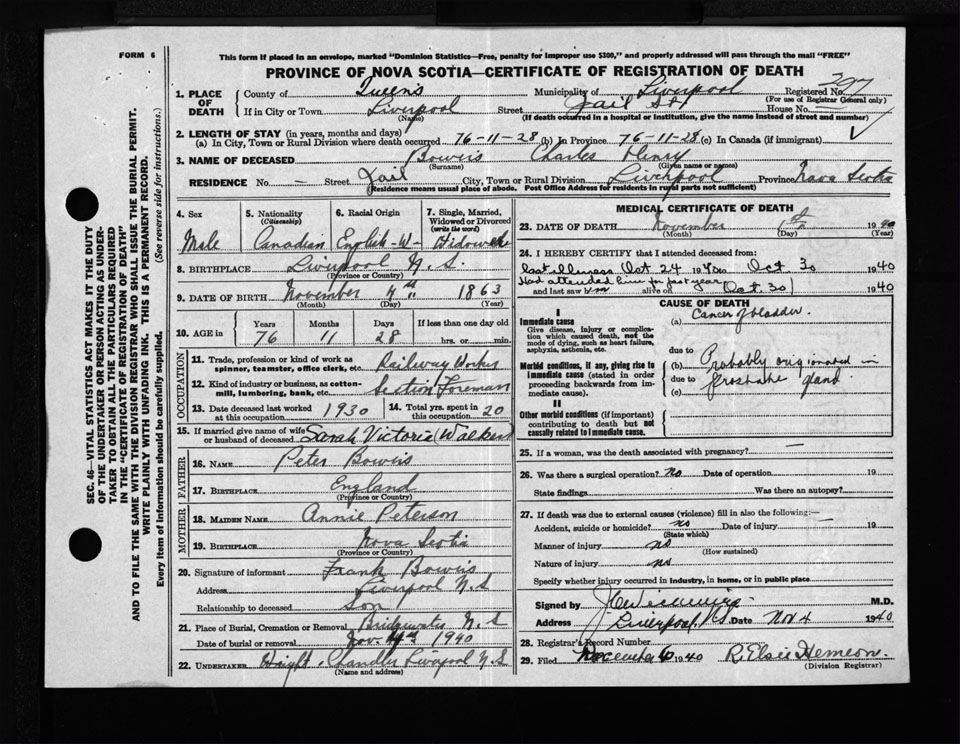 FORM 6
This form if placed in an envelope, marked "Dominion Statistics—Free, penalty for improper use $300," and properly addressed will pass through the mail "FREE"
PROVINCE OF NOVA SCOTIA—CERTIFICATE OF REGISTRATION OF DEATH
1. PLACE OF DEATH
County of Queens Municipality of Liverpool Registered No.
(For use of Registrar General only)
If in City or Town Liverpool Street Jail St House No. —
(Name) (If death occurred in a hospital or institution, give the name instead of street and number)
2. LENGTH OF STAY (in years, months and days)
(a) In City, Town or Rural Division where death occurred 76-11-28 (b) In Province 76-11-28 (c) In Canada (if immigrant)
3. NAME OF DECEASED Bowers Charles Henry
(Surname) (Given name or names)
RESIDENCE No. — Street Jail City, Town or Rural Division Liverpool Province Nova Scotia
(Residence means usual place of abode. Post Office Address for residents in rural parts not sufficient)
4. Sex
Male
5. Nationality
(Citizenship)
Canadian
6. Racial Origin
English-W-
7. Single, Married, Widowed or Divorced
(write the word)
Widower
8. BIRTHPLACE Liverpool N.S.
(Province or Country)
9. DATE OF BIRTH November 7th 1863
(Month) (Day) (Year)
10. AGE in
Years Months Days If less than one day old
76 11 28 hrs. or min.
OCCUPATION
11. Trade, profession or kind of work as spinner, teamster, office clerk, etc. Railway Worker
12. Kind of industry or business, as cotton-mill, lumbering, bank, etc. Section Foreman
13. Date deceased last worked at this occupation 1930
14. Total yrs. spent in this occupation 20
15. If married give name of wife or husband of deceased Sarah Victoria (Walker)
FATHER
16. NAME Peter Bowers
17. BIRTHPLACE England
(Province or Country)
MOTHER
18. MAIDEN NAME Annie Peterson
19. BIRTHPLACE Nova Scotia
(Province or Country)
20. Signature of informant Frank Bowers
Address Liverpool N.S
Relationship to deceased Son
21. Place of Burial, Cremation or Removal Bridgewater N.S
Date of burial or removal Nov. 4th 1940
22. UNDERTAKER Haight & Chandler Liverpool N.S
(Name and address)
MEDICAL CERTIFICATE OF DEATH
23. DATE OF DEATH November 1940
(Month) (Day) (Year)
24. I HEREBY CERTIFY that I attended deceased from:
last illness Oct 24 1940 to Oct 30 1940
Had attended him for past year
and last saw him alive on Oct. 30 1940
CAUSE OF DEATH
I
Immediate cause
Give disease, injury or complication which caused death, not the mode of dying, such as heart failure, asphyxia, asthenia, etc.
(a) Cancer of bladder.
due to
Morbid conditions, if any, giving rise to immediate cause (stated in order proceeding backwards from immediate cause).
(b) Probably originated in
due to
(c) prostate gland.
II
Other morbid conditions (if important) contributing to death but not causally related to immediate cause.
25. If a woman, was the death associated with pregnancy? —
26. Was there a surgical operation? no Date of operation 19
State findings Was there an autopsy?
27. If death was due to external causes (violence) fill in also the following:—
Accident, suicide or homicide? no Date of injury — 19
(State which)
Manner of injury no
(How sustained)
Nature of injury no
Specify whether injury occurred in industry, in home, or in public place
Signed by M.D.
Address Liverpool, N.S. Date Nov 4 1940
28. Registrar's Record Number
29. Filed November 6 1940 R. Elsie Hemeon.
(Division Registrar)
SEC. 46—VITAL STATISTICS ACT MAKES IT THE DUTY
OF THE UNDERTAKER OR PERSON ACTING AS UNDER-
TAKER TO OBTAIN ALL THE PARTICULARS REQUIRED
IN THE "CERTIFICATE OF REGISTRATION OF DEATH"
AND TO FILE THE SAME WITH THE DIVISION REGISTRAR WHO SHALL ISSUE THE BURIAL PERMIT.
WRITE PLAINLY WITH UNFADING INK. THIS IS A PERMANENT RECORD.
Every item of information should be carefully supplied. (See reverse side for instructions.)